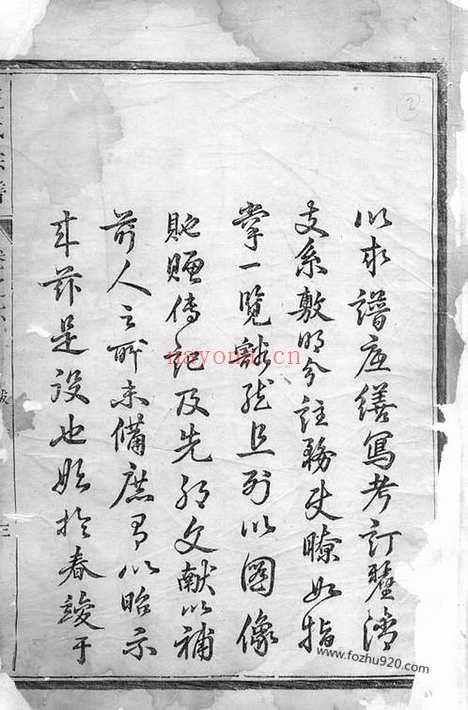 2
以求譜庄繕寫考訂釐清
支系敷明分註務使瞭如指
掌一覽豁然且列以圖像
貤贈傳記及先文獻以補
前人之所未備庶以昭示
來茲是役也始於春竣于
氏宗譜
跋
三
nayona.cn
www.fozhu920.com